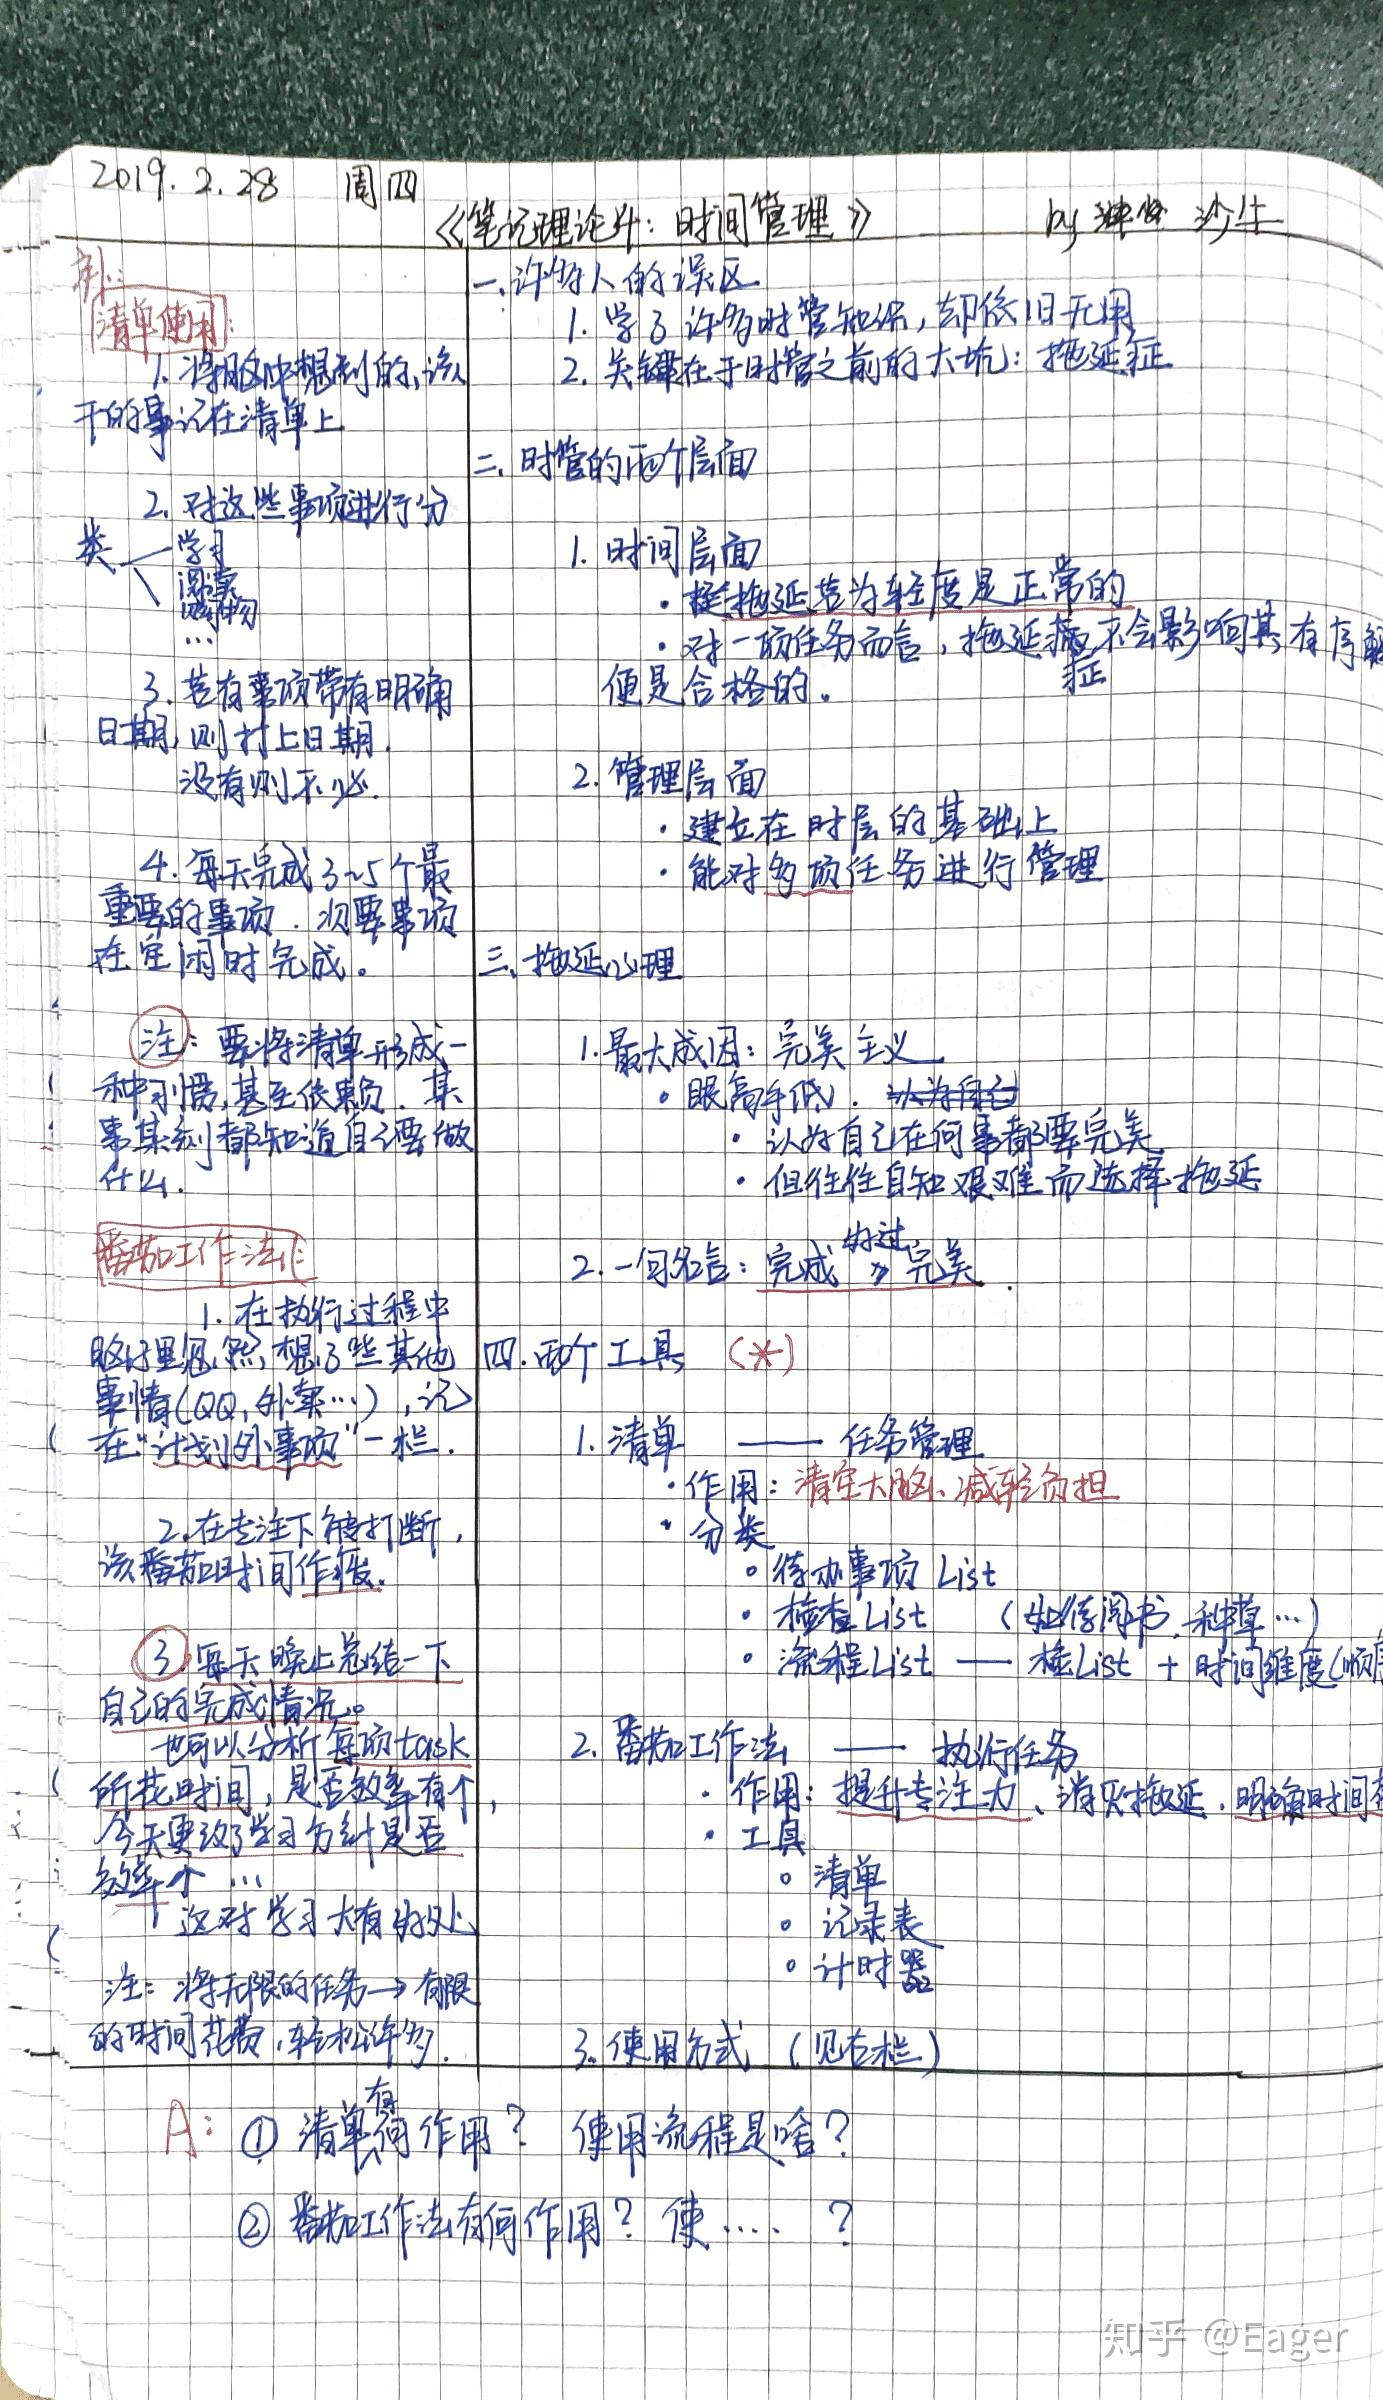 2019.2.28 周四
《笔记理论外：时间管理》 by 沙尘
补：
清单使用：
1. 将脑中想到的、该
干的事记在清单上
2. 对这些事项进行分
类 学习
阅读
购物
…
3. 若有事项带有明确
日期，则打上日期．
没有则不必．
4. 每天完成3~5个最
重要的事项．次要事项
在空闲时完成。
注：要将清单形成一
种习惯，甚至依赖．某
事某刻都知道自己要做
什么．
番茄工作法：
1. 在执行过程中
脑海里忽然想了些其他
事情(QQ，外卖…)，记
在“计划外事项”一栏．
2. 在专注下被打断，
该番茄时间作废．
③．每天晚上总结一下
自己的完成情况。
也可以分析每项task
所花时间，是否效率有个，
今天更改了学习方针是否
效率个 …
这对学习大有好处
注：将无限的任务→有限
的时间花费，轻松许多．
一、许多人的误区
1. 学了许多时管知识，却依旧无用
2. 关键在于时管之前的大坑：拖延症
二、时管的两个层面
1. 时间层面
· 拖延若为轻度是正常的
· 对一项任务而言，拖延症不会影响其有序
便是合格的。
2. 管理层面
· 建立在时层的基础上
· 能对多项任务进行管理
三、拖延心理
1. 最大成因：完美主义
· 眼高手低． 认为自己
· 认为自己在何事都要完美
· 但往往自知艰难而选择拖延
2. 一句名言：完成 好过 » 完美．
四．两个工具 (*)
1. 清单 —— 任务管理
· 作用：清空大脑、减轻负担
· 分类
∘ 待办事项List
· 检查List (如信阅书，种草…)
· 流程List — 检List + 时间维度(顺序
2. 番茄工作法 —— 执行任务
· 作用：提升专注力、消灭拖延．明确时间
· 工具
∘ 清单
∘ 记录表
∘ 计时器
3. 使用方式 (见左栏)
A： ① 清单有何作用？ 使用流程是啥？
② 番茄工作法有何作用？ 使….. ？
知乎 @Eager